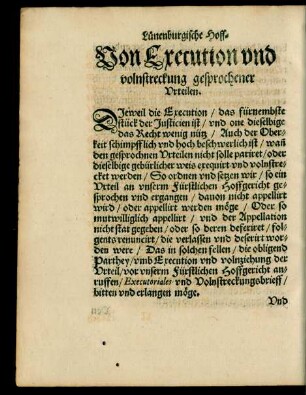 Lünenburgische Hoff-
Von Execution vnd
volnstreckung gesprochener
Vrteilen.
DJeweil die Execution / das fürnembste
stück der Justicien ist / vnd one dieselbige
das Recht wenig nütz / Auch der Ober-
keit schimpfflich vnd hoch beschwerlich ist / wañ
den gesprochnen Vrteilen nicht solle pariret / oder
dieselbige gebürlicher weis exequirt vnd volnstre-
cket werden / So ordnen vnd setzen wir / so ein
Vrteil an vnserm Fürstlichen Hoffgericht ge-
sprochen vnd ergangen / dauon nicht appellirt
wird / oder appellirt werden möge / Oder so
mutwilliglich appellirt / vnd der Appellation
nicht stat gegeben / oder so deren deferiret / fol-
gents renuncirt / die verlassen vnd deserirt wor-
den were / Das in solchen fellen / die obligend
Parthey / vmb Execution vnd volnziehung der
Vrteil / vor vnserm Fürstlichen Hoffgericht an-
ruffen / Executoriales vnd Volnstreckungsbrieff /
bitten vnd erlangen möge.
Vnd